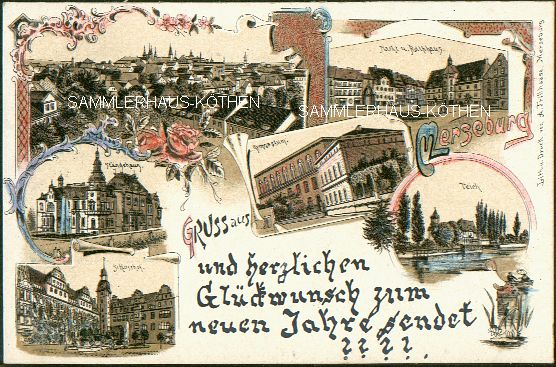 Markt u. Rathhaus
SAMMLERHAUS-KÖTHEN
SAMMLERHAUS-KÖTHEN
Merseburg
Gymnasium
Ständehaus
Teich
Gruss aus
Schlosshof
und herzlichen
Glückwunsch zum
neuen Jahre sendet
? ? ? ? .